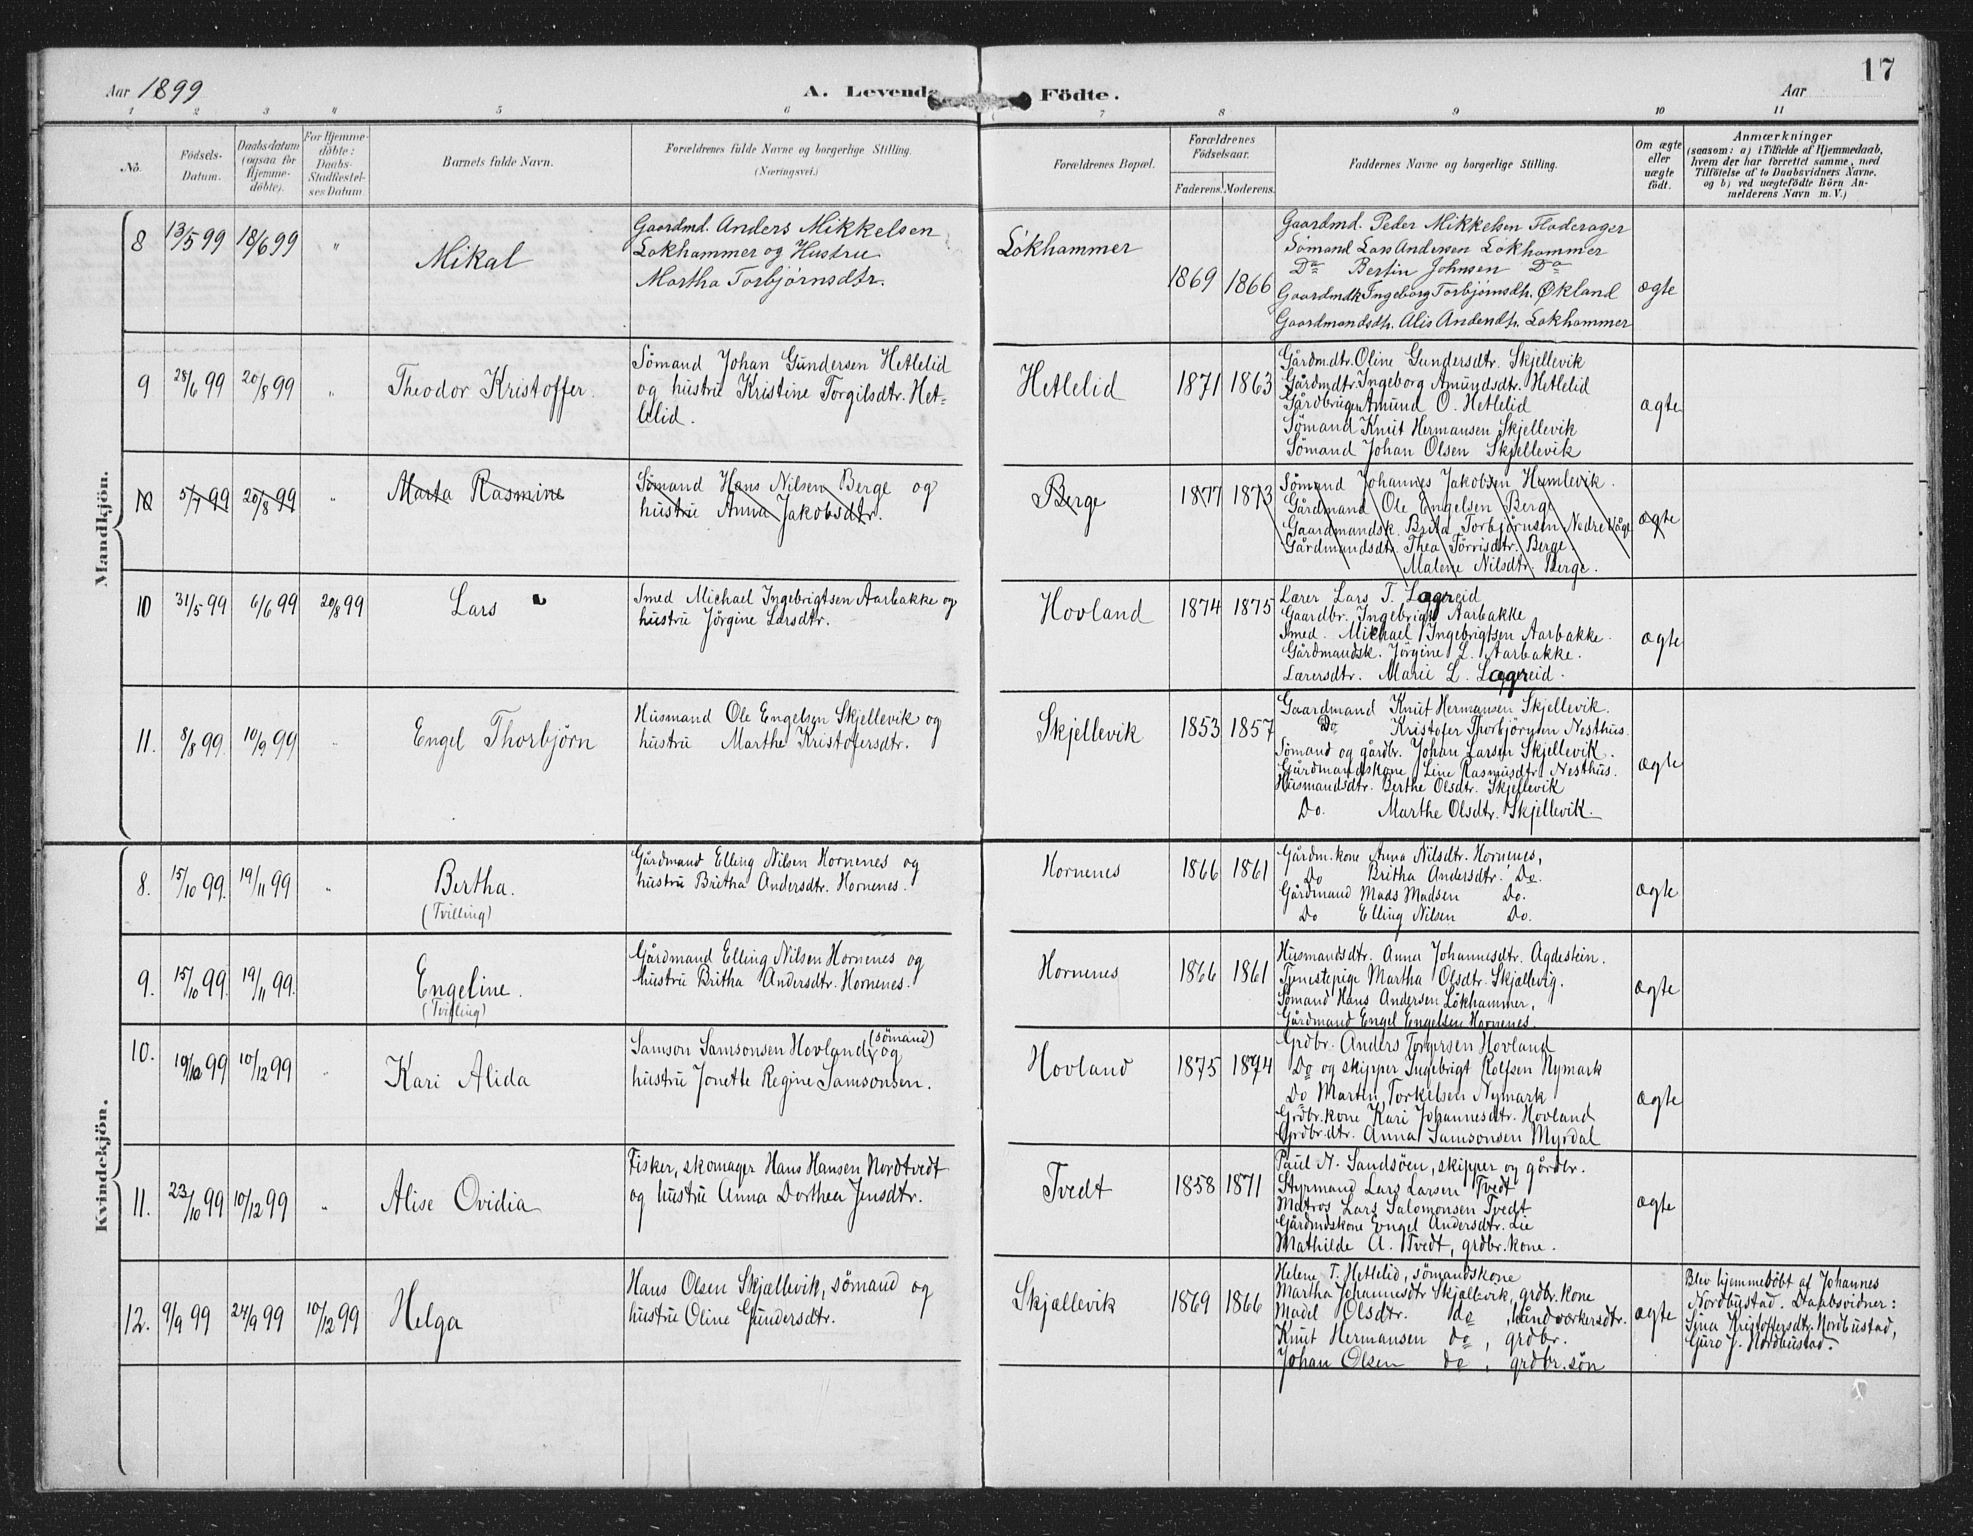 17
Aar 1899
A. Levende Födte.
Aar
1 2 3 4 5 6 7 8 9 10 11
No.
Födsels-Datum.
Daabsdatum (ogsaa for Hjemmedöbte).
For Hjemmedöbte: Daabs-Stadfæstelses Datum
Barnets fulde Navn.
Forældrenes fulde Navne og borgerlige Stilling.
(Næringsvei.)
Forældrenes Bopæl.
Forældrenes Födselsaar.
Faderens. Moderens.
Faddernes Navne og borgerlige Stilling.
Om ægte eller uægte födt.
Anmærkninger
(saasom: a) i Tilfælde af Hjemmedaab,
hvem der har forrettet samme, med
Tilföielse af to Daabsvidners Navne,
og b) ved uægtefödte Börn An-
melderens Navn m. V.)
Mandkjön.
8 13/5 99 18/6 99 "
Mikal
Gaardmd. Anders Mikkelsen
Lokhammer og Hustru
Martha Torbjørnsdtr.
Lökhammer
1869 1866
Gaardmd. Peder Mikkelsen Fladerager
Sömand Lars Andersen Lokhammer
Do Bertin Johnsen Do
Gaardmdk Ingeborg Torbjørnsdtr. Økland
Gaardmandsdtr. Alis Andersdtr. Lokhammer
ægte
9 28/6 99 20/8 99 "
Theodor Kristoffer.
Sömand Johan Gundersen Hetlelid
og hustru Kristine Torgilsdtr. Het-
lelid.
Hetlelid
1871 1863
Gårdmdtr. Oline Gundersdtr. Skjellevik
Gårdmdtr. Ingeborg Amundsdtr. Hetlelid
Gårdbruger Amund O. Hetlelid
Sömand Knut Hermansen Skjellevik
Sömand Johan Olsen Skjellevik
ægte
10 5/7 99 20/8 99 "
Marta Rasmine
Sömand Hans Nilsen Berge og
hustru Anna Jakobsdtr.
Berge
1877 1873
Sömand Johannes Jakobsen Hamlevik.
Gårdmand Ole Engelsen Berge
Gaardmandsk. Brita Torbjörnsen Nedre Våge
Gårdmandsdtr. Thea Torrisdtr. Berge
Malene Nilsdtr. Berge.
ægte
10 31/5 99 6/6 99 20/8 99
Lars
Smed Michael Ingebrigtsen Aarbakke og
hustru Jörgine Larsdtr.
Hovland
1874 1875
Lærer Lars T. Lægreid
Gaardbr. Ingebrigt Aarbakke
Smed. Mikhael Ingebrigtsen Aarbakke.
Gårdmandsk. Jörgine L. Aarbakke.
Lærersdtr. Marie L. Lægreid.
ægte
11. 8/8 99. 10/9 99 "
Engel Thorbjörn
Husmand Ole Engelsen Skjellevik og
hustru Marthe Kristofersdtr.
Skjellevik
1853 1857
Gaardmand Knut Hermansen Skjellevik.
Do Kristofer Thorbjörnsen Nesthus.
Sömand og gårdbr. Johan Larsen Skjellevik.
Gårdmandskone Line Rasmusdtr. Nesthus.
Husmandsdtr. Berthe Olsdtr. Skjellevik
Do. Marthe Olsdtr. Skjellevik.
ægte
Kvindekjön.
8. 15/10 99. 19/11 99 "
Bertha.
(Tvilling)
Gårdmand Elling Nilsen Hornenes og
hustru Britha Andersdtr. Hornenes.
Hornenes
1866 1861
Gårdm.kone Anna Nilsdtr. Hornenes,
Do Britha Andersdtr. Do.
Gårdmand Mads Madsen Do.
Do Elling Nilsen Do.
ægte
9. 15/10 99. 19/11 99.
Engeline.
(Tvilling)
Gårdmand Elling Nilsen Hornenes og
hustru Britha Andersdtr. Hornenes.
Hornenes
1866 1861
Husmandsdtr. Anna Johannesdtr. Agdestein.
Tjenestepige Martha Olsdtr. Skjællevig.
Sömand Hans Andersen Lökhammer,
Gårdmand Engel Engelsen Hornenes
ægte
10. 19/12 99 10/12 99 "
Kari Alida
Samson Samsonsen Hovland (sömand) og
hustru Jonette Regine Samsonsen.
Hovland
1875 1874
Grdbr. Anders Torgersen Hovland
Do og skipper Ingebrigt Rolfsen Nymark
Do Martin Torkelsen Nymark
Grdbr.kone Kari Johannesdtr. Hovland
Grdbr.dtr. Anna Samsonsen Myrdal
ægte
11. 23/10 99 10/12 99 "
Alise Ovidia
Fisker, skomager Hans Hansen Nordtvedt
og hustru Anna Dorthea Jensdtr.
Tvedt
1858 1871
Paul N. Sandsöen, skipper og gårdbr.
Styrmand Lars Larsen Tvedt
Matros Lars Salomonsen Tvedt
Gårdmdskone Engel Andersdtr. Lie
Mathilde A. Tvedt, grdbr.kone.
ægte
12. 9/9 99 24/9 99 10/12 99
Helga
Hans Olsen Skjællevik, sömand og
hustru Oline Gundersdtr.
Skjællevik
1869 1866
Helene T. Hetlelid, sömandskone
Martha Johannesdtr Skjællevik, grdbr.kone
Madel Olsdtr. do, håndværkersdtr.
Knut Hermansen do, grdbr.
Johan Olsen do, grdbr.sön
ægte
Blev hjemmedöbt af Johannes
Nordbustad. Daabsvidner:
Sina Kristoffersdtr. Nordbustad,
Guro J. Nordbustad.